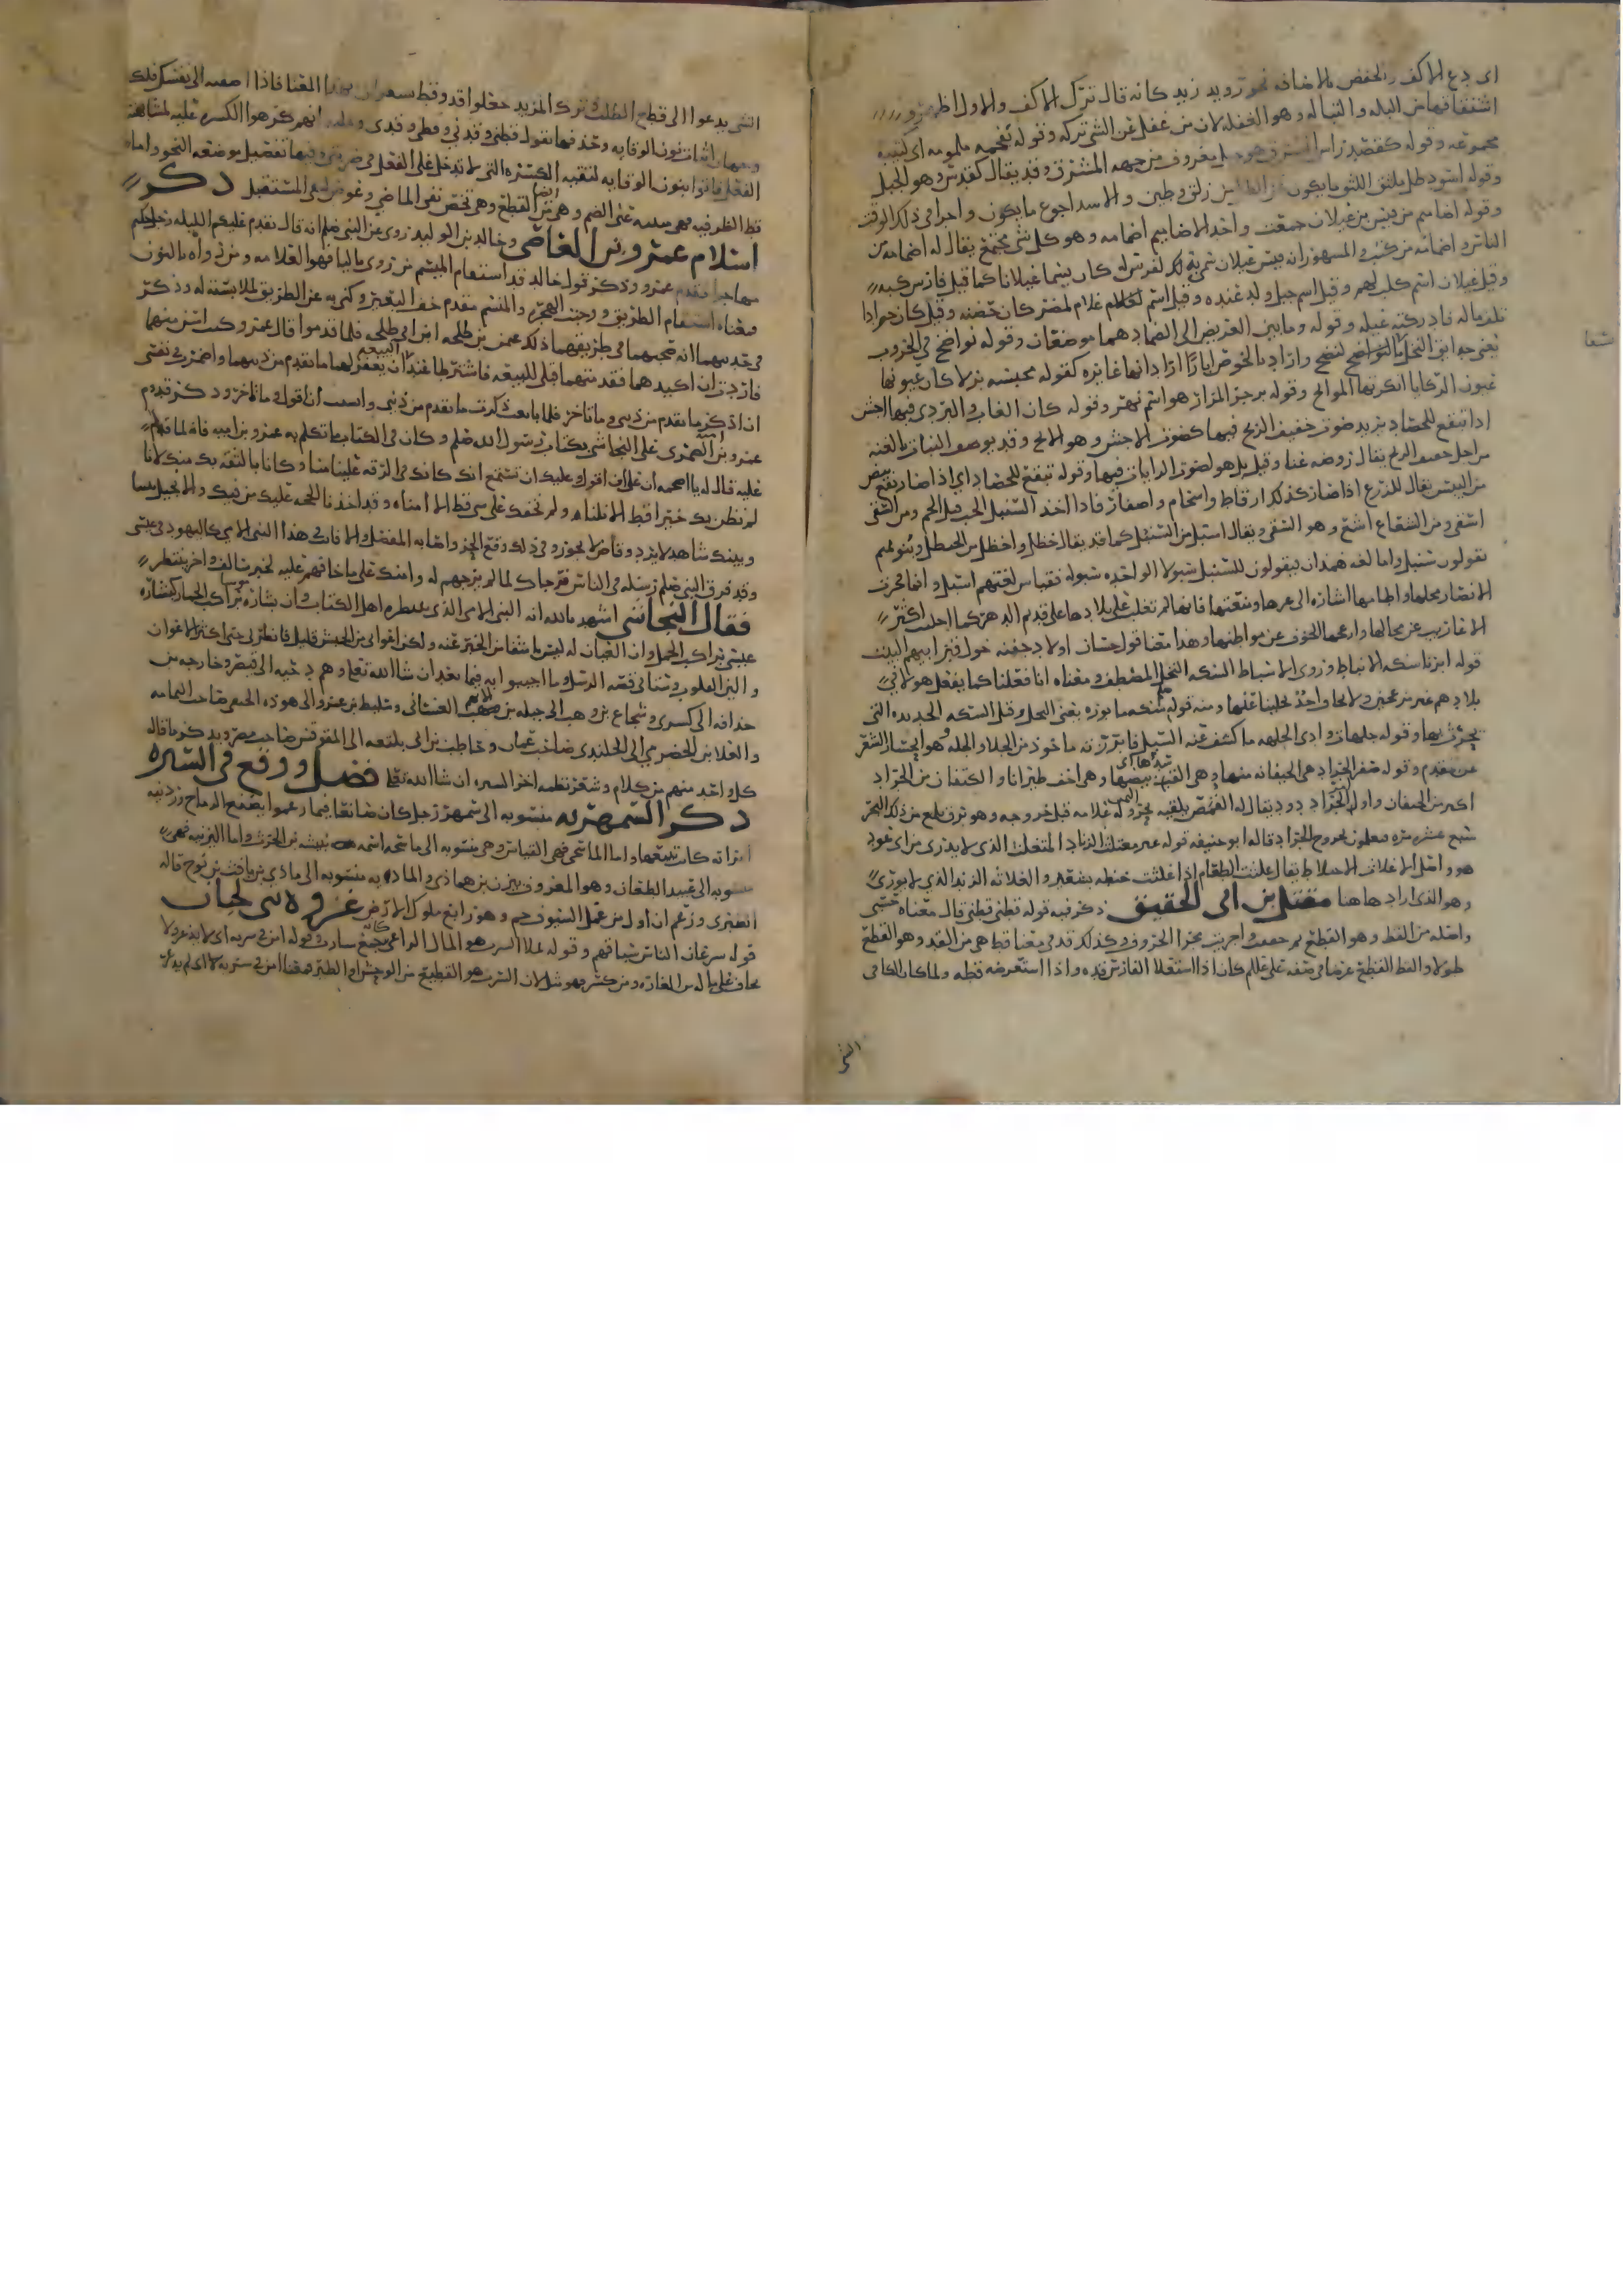 اى دع الاكف والخفض بالاضافه نحو رويد زيد كانه قال ترك الاكف والاول اظهر
اشتقاقها من البله والتباله وهو الغفله لان من غفل عن الشى تركه وقوله نخمه ملمومه اى كتيبه
مجموعه وقوله كقصد راس المشرق هو جبل معروف من جهه المشرق وقد يقال كقدس وهو الجبل
وقوله اسود طل بلثق اللثق ما يكون عن الطل من زلق وطين والاسد اجوع ما يكون واجرا فى ذلك الوقت
وقوله اضاميم من قيس بن عيلان جمعت واحد الاضاميم اضمامه وهو كل شى مجتمع يقال له اضمامه من
الناس واضمامه من كتب والمشهور انه قيس عيلان سمى بذلك لفرس له كان يسما عيلانا كما قيل فارس كبه
وقيل عيلان اسم كلب لهم وقيل اسم جبل ولد عنده وقيل اسم غلام لمضر كان حضنه وقيل كان جوادا
تلف ماله فادركته عيله وقوله وما بين العريض الى الضماد هما موضعان وقوله نواضح فى الحروب
يعنى حدايق النخل بالنواضح لنضح واراد بالخوص ابارا اراد انها غايره كقوله محبسه بزلا كان عيونها
عيون الركايا انكرتها الموايح وقوله بزجر المرار هو اسم نهر وقوله كان الغاب والبردى فيها اجش
اذا تبقع للحصاد يريد صوت خفيف الريح فيها كصوت الاجش وهو الابح وقد يوصف النبات بالغنه
من اجل حفيف الريح يقال روضه غنا وقيل بل هو لصوت الذباب فيها وقوله تبقع للحصاد اى اذا صار بقع بيض
من اليبس يقال للزرع اذا صار كذلك ارقاط واسحام واصفار فاذا اخذ السنبل الحب قيل الحم ومن السفى
اسفى ومن الشعاع اشع وهو السفى ويقال اسبل من السنبل كما قد يقال خظل واخظل من الحنظل وبنو تميم
يقولون سنبل واما لغه همدان فيقولون للسنبل سبولا الواحده سبوله فقياس لغتهم اسبل وانما تحرف
الانصار بنخلها واطامها اشارة الى عزها ومنعتها فانها لم تغلب على بلادها على قديم الدهر كما اجليت اكثر
الاعاريب عن محالها وازعجها الخوف عن مواطنها وهذا معنا قول حسان اولاد جفنه حول قبر ابيهم البيت
قوله ابرنا سكه الانباط وروى الاسباط السكه النخل المصطف ومعناه انا فعلنا كما يفعل هولا فى
بلادهم غير من عجز ولا لجا واحد لحلينا عنها ومنه قوله سكه مابوره يعنى النخل وقيل السكه الحديده التى
يحرث بها وقوله جلهات وادى الجلهه ما كشف عنه السيل فابرزته ماخوذ من الجلا والجله وهو انحسار الشعر
عن مقدم وقوله صفر الجراد هى الخيفانه منها وهى التى القت بيضها وهى اخف طيرانا والكتفان من الجراد
اكبر من الخيفان واول الجراد دود يقال له القمص يلقيه بحر وله علامه قبل خروجه وهو برق يلمع من ذلك البحر
سبع عشره مره فيعلمون بخروج الجراد قاله ابو حنيفه قوله غير معتلث الزناد المعتلث الذى لا يدرى من اى عود
هو واصل الاعلاث الاخلاط يقال علثت الطعام اذا علثت حنطه بشعير والعلاثه الزند الذى لا يورى
وهو الذى اراد هاهنا مقتل بن ابى الحقيق ذكر فيه قوله قطنى قطنى قال معناه حسبى
واصله من القط وهو القطع ثم خففت واجريت مجرا الحروف وكذلك قد فى معنا قط هى من القد وهو القطع
طولا والقط القطع عرضا فى صفه على عليم كان اذا استعلا الفارس قده واذا استعرضه قطه ولما كان الكافى
الشى
الشى يدعوا الى قطع الطلب وترك المزيد جعلوا قد وقط بهذا المعنا فاذا اضفته الى نفسك قلت
اثبات نون الوقايه وحذفها تقول قطنى وقدنى وقطى وقدى انهم كرهوا الكسره عليه لمشابهته
الفعل فاتوا بنون الوقايه لتقيه الكسره التى لا تدخل على الفعل وفيها تفصيل موضعه النحو واما
قط الظرفيه فهى مبنيه على الضم وهى من القطع ايضا وهى تختص نفى الماضى وعوض لنفى المستقبل ذكر
اسلام عمرو بن العاصى وخالد بن الوليد روى عن النبى صلم انه قال يقدم عليكم الليله رجل حكيم
مهاجرا فقدم عمرو وذكر قول خالد قد استقام الميسم من روى باليا فهو العلامه ومن رواه بالنون
معناه استقام الطريق ووجبت الهجره والمنسم مقدم خف البعير وكنى به عن الطريق لملابسته له وذكر
فى حديثهما انه صحبهما فى طريقهما ذلك عثمن بن طلحه بن ابى طلحه فلما قدموا قال عمرو وكنت اسن منهما
فاردت ان اكيدهما فقدمتهما قبلى للبيعه فاشترطا عند البيعه ان يغفر لهما ما تقدم من ذنبهما واضمرت فى نفسى
ان اذكر ما تقدم من ذنبى وما تاخر فلما بايعت ذكرت ما تقدم من ذنبى وانسيت ان اقول وما تاخر وذكر قدوم
عمرو بن اميه الضمرى على النجاشى بكتاب رسول الله صلم وكان فى الكتاب ما تكلم به عمرو بن اميه فانه لما قدم
عليه قال له يا اصحمه ان على ان اقول وعليك ان تستمع انك كانك فى الرقه علينا منا وكانا بالثقه بك منك لانا
لم نظن بك خيرا قط الا نلناه ولم نخفك على شى قط الا امناه وقد اخذنا الحجه عليك من فيك والانجيل بيننا
وبينك شاهد لا يرد وقاض لا يجور وفى ذلك وقع الحز واصابه المفصل والا فانت فى هذا النبى الامى كاليهود فى عيسى
وقد فرق النبى صلم رسله فى الناس فرجاك لما لم يرجهم له وامنك على ما خافهم عليه لخير سالف واجر ينتظر
فقال النجاشى اشهد بالله انه النبى الامى الذى ينتظره اهل الكتاب وان بشاره موسى براكب الحمار كبشاره
عيسى براكب الجمل وان العيان له ليس باشفا من الخبر عنه ولكن اعوانى من الحبش قليل فانظرنى حتى اكثر الاعوان
والين القلوب وسناتى قصه الرسل وما اجيبوا به فيما بعد ان شا الله تعلى وهم دحيه الى قيصر وخارجه بن
حذافه الى كسرى وشجاع بن وهب الى جبله بن الايهم الغسانى وسليط بن عمرو الى هوذه الحنفى صاحب اليمامه
والعلا بن الحضرمى الى الجلندى صاحب عمان وحاطب بن ابى بلتعه الى المقوقس صاحب مصر ويذكر ما قاله
كل واحد منهم من كلام وشعر نظمه اخر السيره ان شا الله تعلى فصل ووقع فى السيره
ذكر السمهريه منسوبه الى سمهر رجل كان صانعا فيما زعموا يصنع الرماح وردينه
امراته كانت تبيعها واما الماسخى فهى القياس وهى منسوبه الى ماسخه اسمه نبيشه بن الحرث واما اليزنيه فهى
منسوبه الى عبيد الطعان وهو المعروف بيزن بن هماذى والماذيه منسوبه الى ماذى بن يافث بن نوح قاله
الطبرى وزعم ان اول من عمل السيوف جم وهو رابع ملوك الارض غزوة بنى لحيان
قوله سرعان الناس سباقهم وقوله يملا السرب هو المال الراعى كانه جمع سارب وقوله امن فى سربه اى لا يذعر ولا
يخاف على ماله من الغاره ومن كسر فهو مثل لان السرب هو القطيع من الوحش او الطير فمعنا امن فى سربه